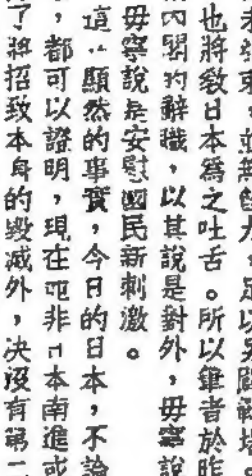 也將致日本為之吐舌。所以筆者於昨
內閣的辭職，以其說是對外，毋寧說
毋寧說是安慰國民新刺激。
這些顯然的事實，今日的日本，不論
，都可以證明，現在並非日本南進或
了將招致本身的毀滅外，決沒有第二